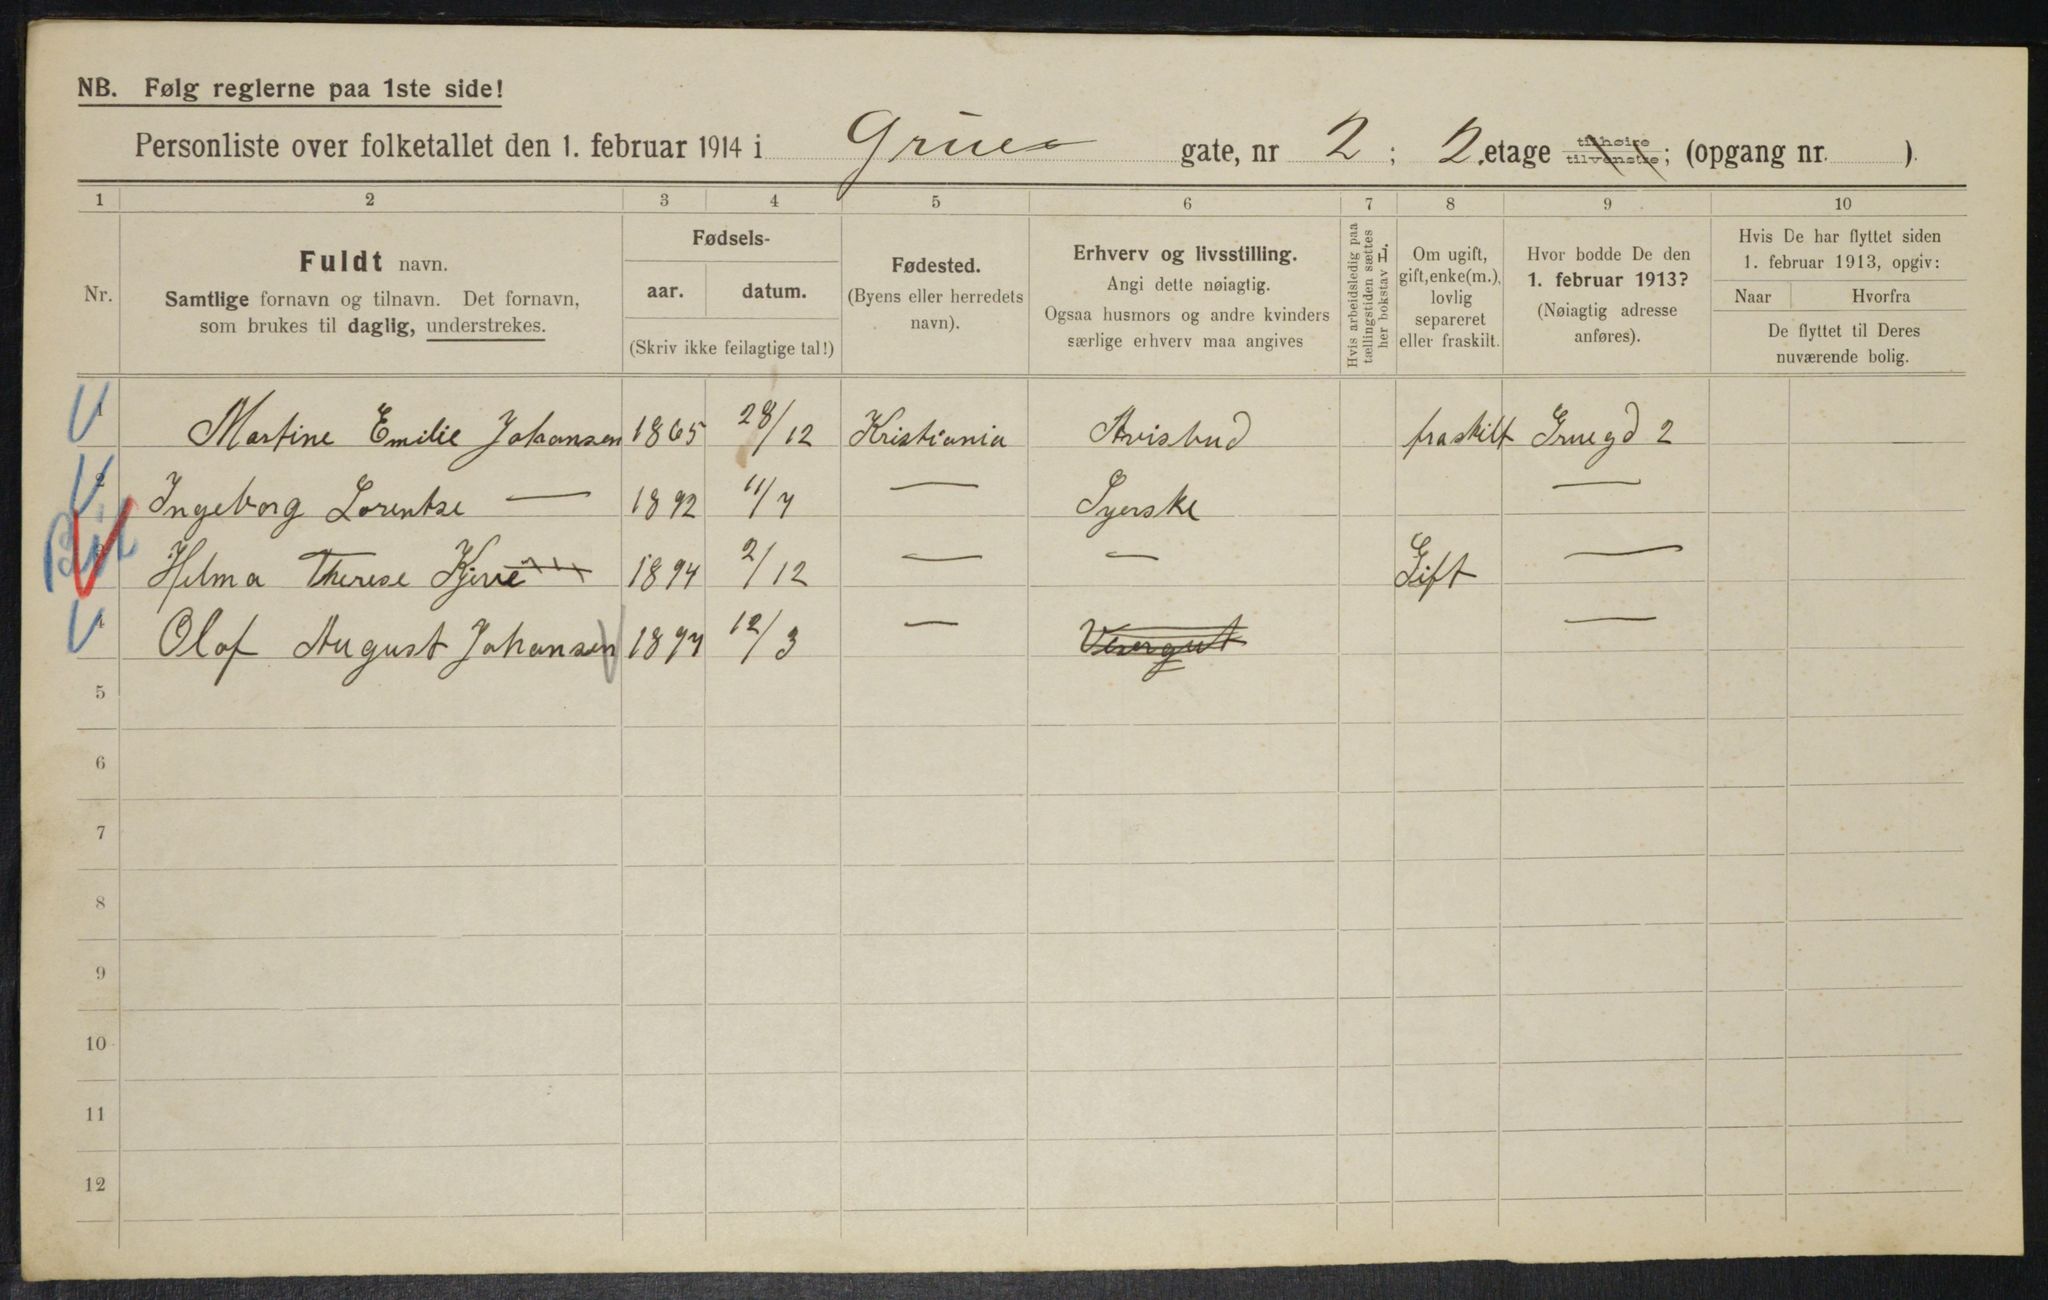 NB. Følg reglerne paa 1ste side!
Personliste over folketallet den 1. februar 1914 i Grue gate, nr 2; 2. etage tilhøire tilvenstre; (opgang nr. ).
1 2 3 4 5 6 7 8 9 10
Nr.
Fuldt navn.
Samtlige fornavn og tilnavn. Det fornavn,
som brukes til daglig, understrekes.
Fødsels-
aar. datum.
(Skriv ikke feilagtige tal!)
Fødested.
(Byens eller herredets
navn).
Erhverv og livsstilling.
Angi dette nøiagtig.
Ogsaa husmors og andre kvinders
særlige erhverv maa angives
Hvis arbeidsledig paa
tællingstiden sættes
her bokstav L.
Om ugift,
gift, enke(m.),
lovlig
separeret
eller fraskilt.
Hvor bodde De den
1. februar 1913?
(Nøiagtig adresse
anføres).
Hvis De har flyttet siden
1. februar 1913, opgiv:
Naar Hvorfra
De flyttet til Deres
nuværende bolig.
1 Martine Emilie Johansen 1865 28/12 Kristiania Avisbud fraskilt Gruegd 2
2 Ingeborg Lorentze — 1892 11/7 — Syerske —
3 Helma Therese Kjerre 1894 2/12 — — Gift —
4 Olaf August Johansen 1897 12/3 — Visergut —
5
6
7
8
9
10
11
12